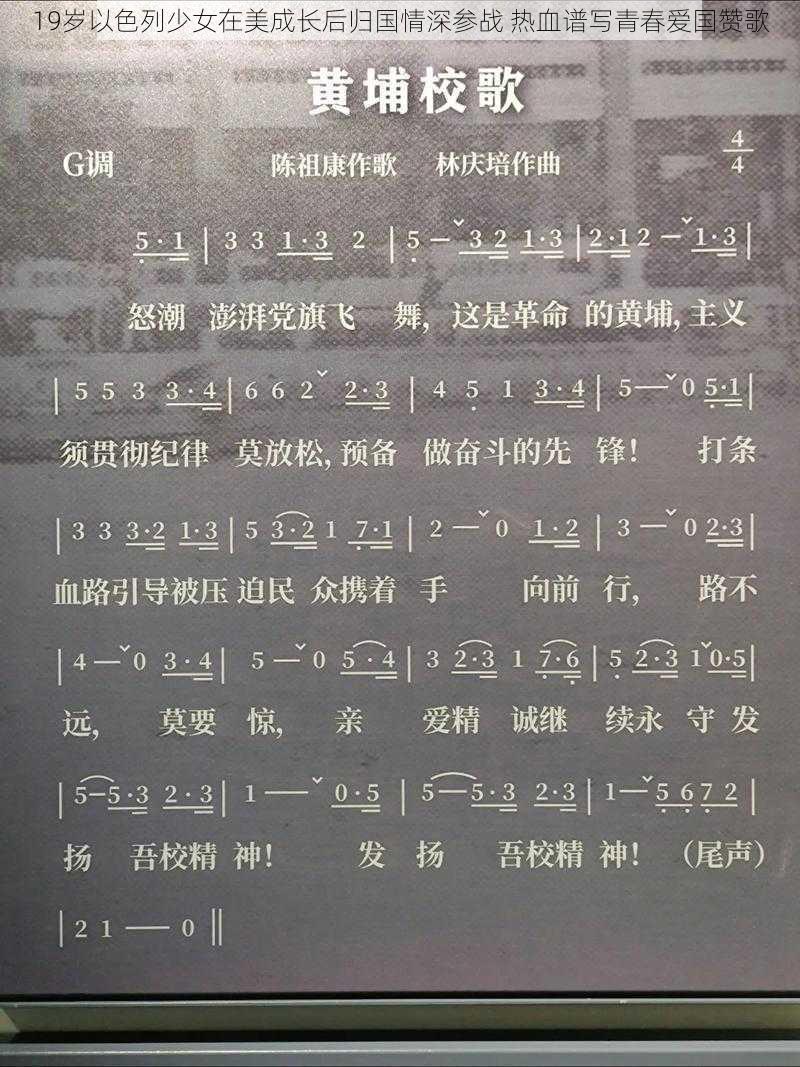 19岁以色列少女在美成长后归国情深参战 热血谱写青春爱国赞歌
黄埔校歌
G调 陈祖康作歌 林庆培作曲 4/4
5·1 | 3 3 1·3 2 | 5 — ˇ 3 2 1·3 | 2·1 2 — ˇ 1·3 |
怒潮 澎湃党旗飞 舞, 这是革命 的黄埔, 主义
| 5 5 3 3·4 | 6 6 2 ˇ 2·3 | 4 5 1 3·4 | 5 — ˇ 0 5·1 |
须贯彻纪律 莫放松, 预备 做奋斗的先 锋! 打条
| 3 3 3·2 1·3 | 5 3·2 1 7·1 | 2 — ˇ 0 1·2 | 3 — ˇ 0 2·3 |
血路引导被压 迫民 众携着 手 向前 行, 路不
| 4 — ˇ 0 3·4 | 5 — ˇ 0 5·4 | 3 2·3 1 7·6 | 5 2·3 1 ˇ 0·5 |
远, 莫要 惊, 亲 爱精 诚继 续永 守 发
| 5 — 5·3 2·3 | 1 — ˇ 0·5 | 5 — 5·3 2·3 | 1 — ˇ 5 6 7 2 |
扬 吾校精 神! 发 扬 吾校精 神! (尾声)
| 2 1 — 0 ‖